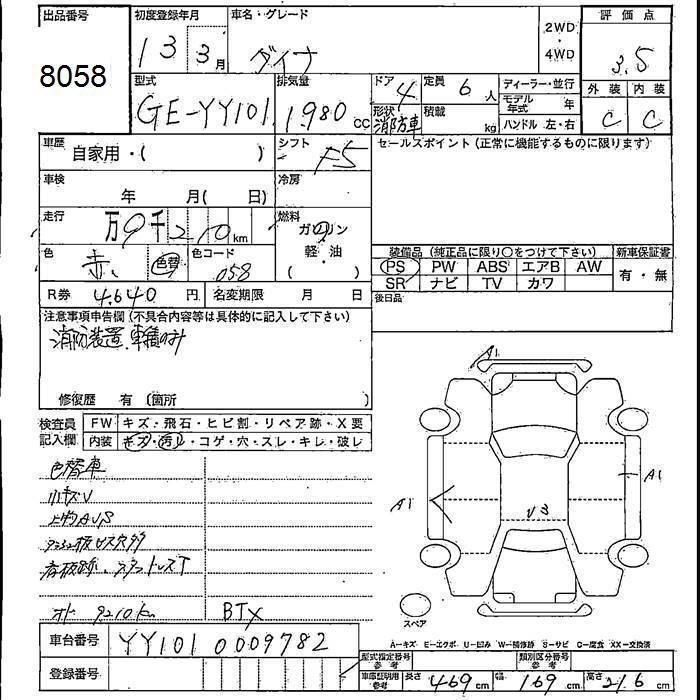 出品番号 初度登録年月 車名・グレード 2WD・4WD 評価点
8058 13 3月 ダイナ 3.5
型式 排気量 ドア 定員 ディーラー・並行 外装 内装
GE-YY101 1,980cc 4 6人 モデル年式 年 C C
形状 消防車 積載 kg ハンドル 左・右
車歴 自家用・( ) シフト F5 セールスポイント (正常に機能するものに限ります)
車検 年 月( 日) 冷房
走行 万9千210km 燃料 ガソリン
軽・油
( )
色 赤 色替 色コード 058 装備品 (純正品に限り○をつけて下さい) 新車保証書
PS PW ABS エアB AW 有・無
SR ナビ TV カワ
R券 4,640円 名変期限 月 日 後日品
注意事項申告欄 (不具合内容等は具体的に記入して下さい)
消防装置、車積のみ
修復歴 有 (箇所 )
検査員記入欄 FW キズ・飛石・ヒビ割・リペア跡・X要
内装 キズ・汚レ・コゲ・穴・スレ・キレ・破レ
A1
A1
A1
U3
スペア
色替車
小キズU
オド 9210km BTX
A−キズ E−エクボ U−凹み W−補修跡 S−サビ C−腐食 XX−交換済
車台番号 YY101 0009782
登録番号
型式指定番号 参考 類別区分番号 参考
車庫証明用 参考 長さ 469cm 幅 169cm 高さ 216cm